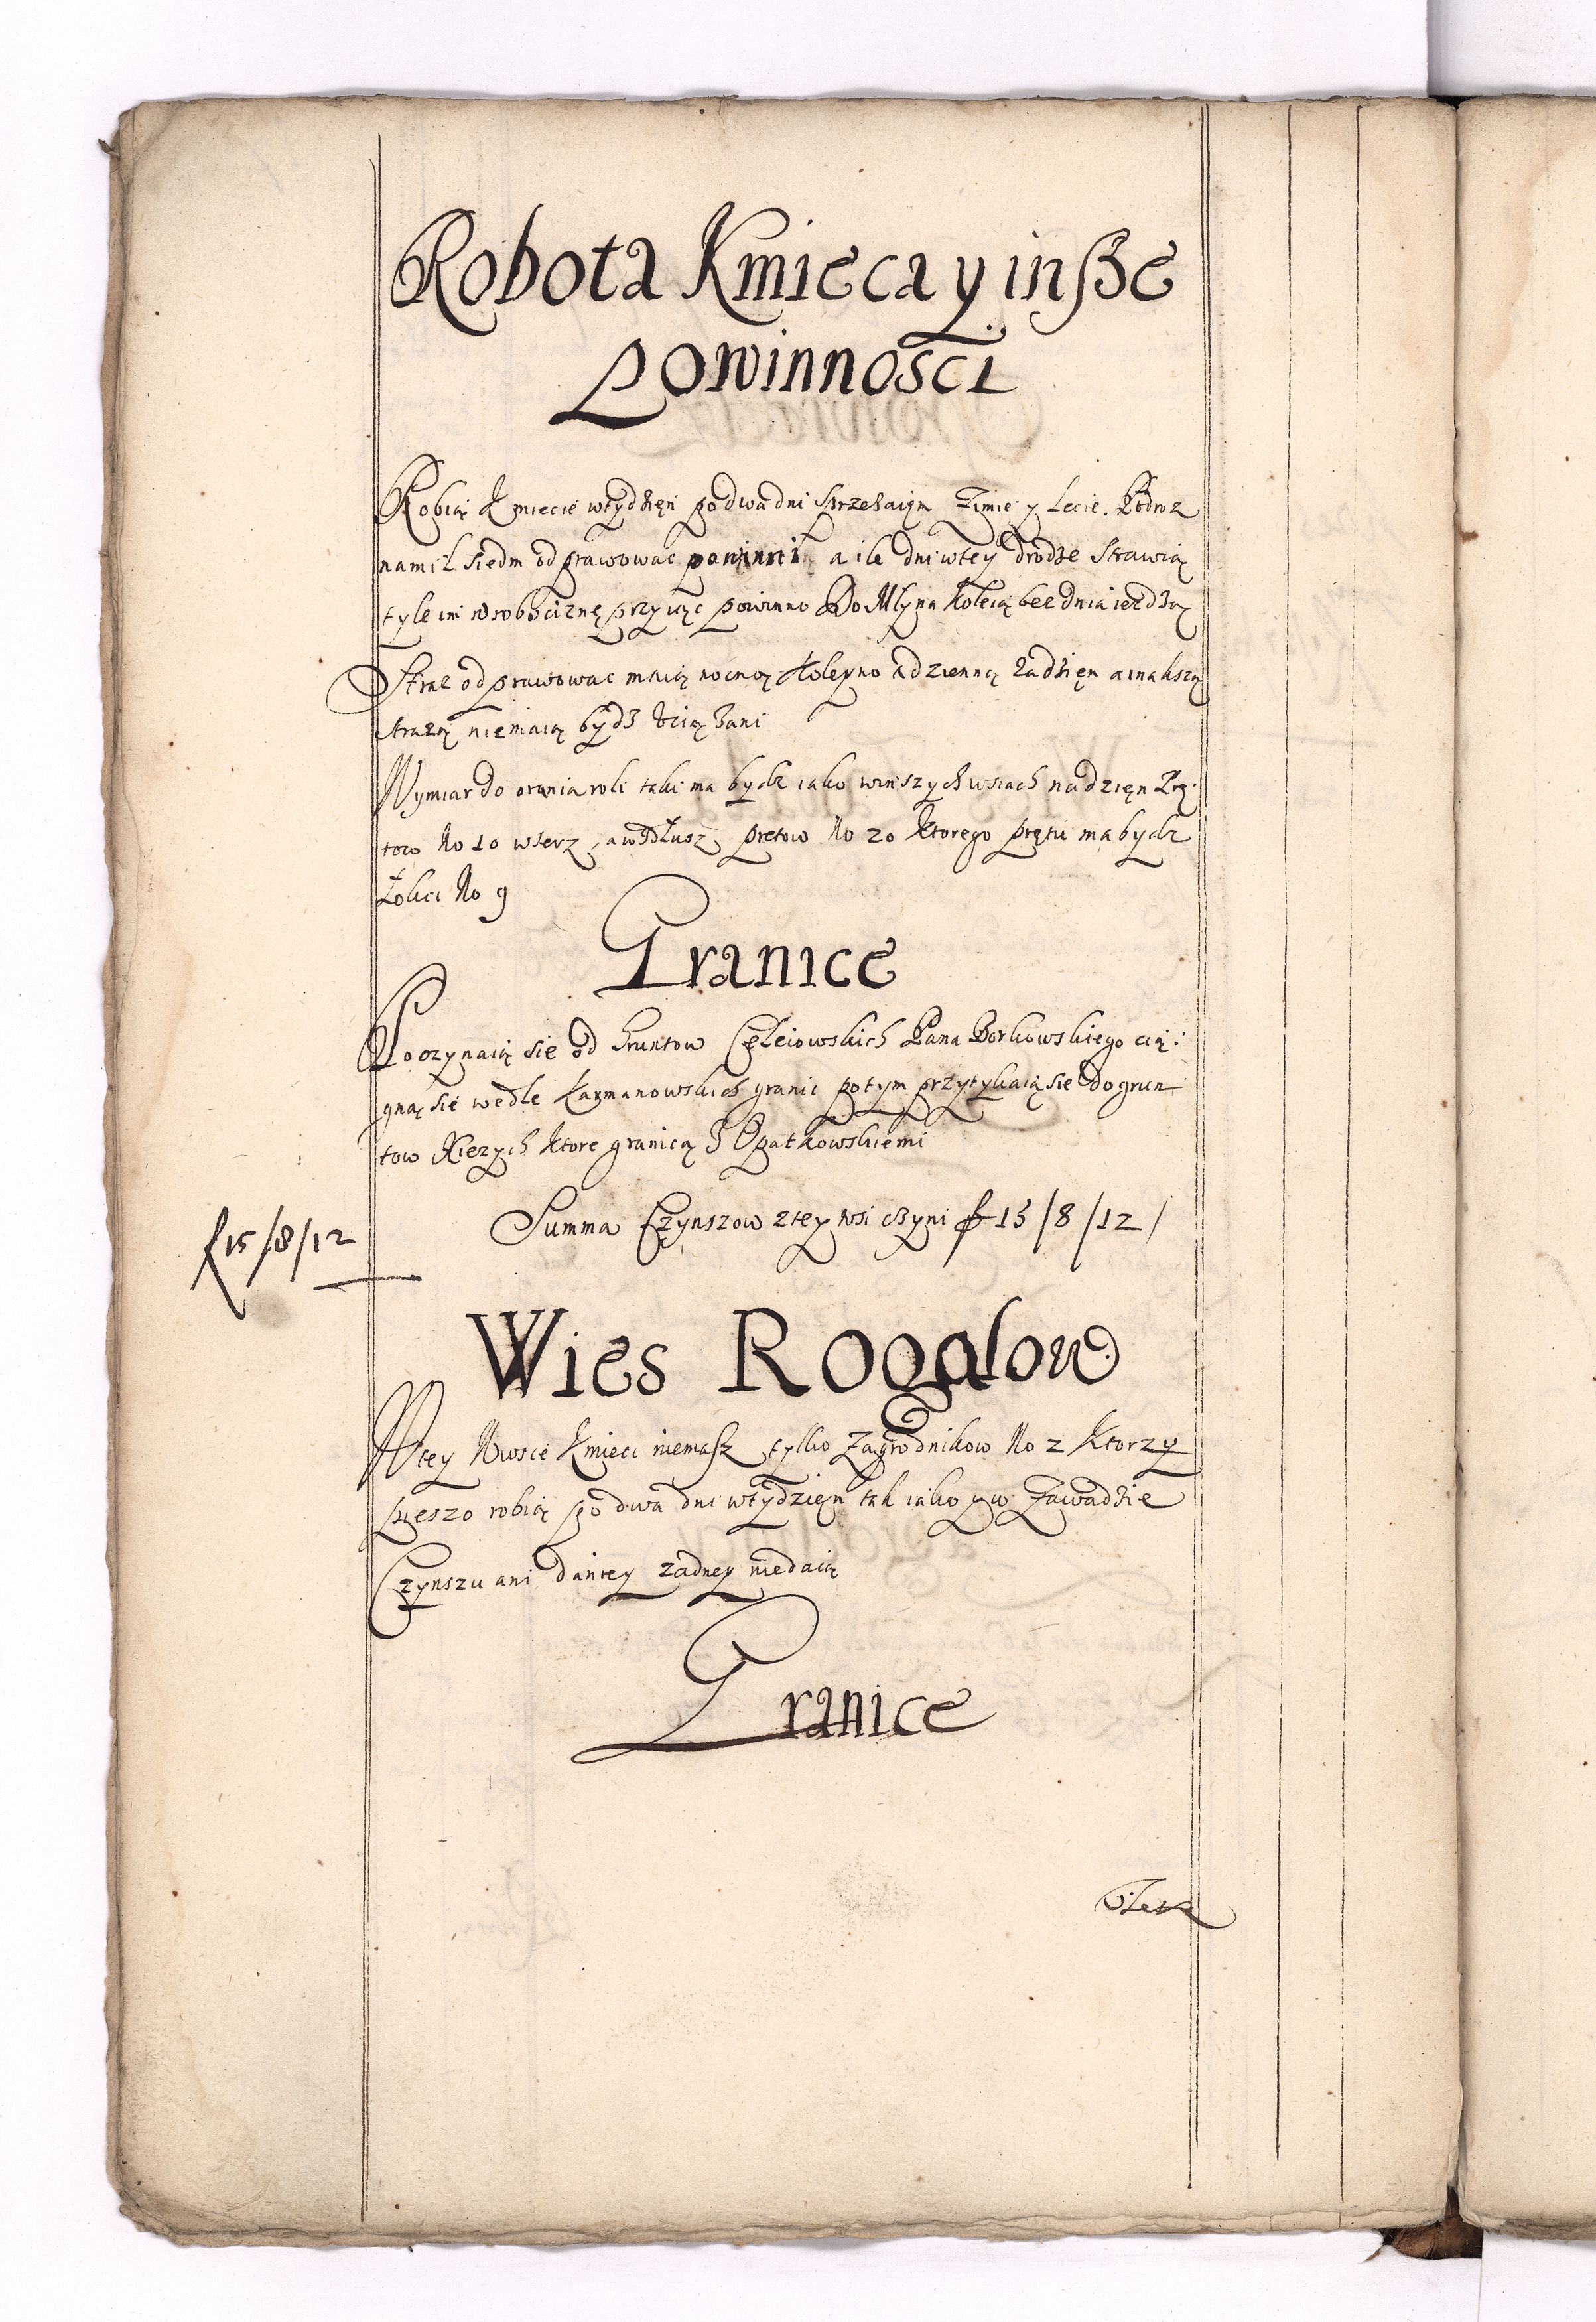 Robota Kmieca y inſze
Powinnosci
Robią Kmiecie w tydzięn po dwa dni sprzezaięm Zimie y Lecie. Podroz
na mil siedm odprawowac powinni a ile dni w tey drodze strawią
tyle im w robociznę przyiąc powinno Do Młyna koleią bez dnia iezdzą
Straz odprawowac maią nocną koleyno a dzienną za dzięn a inakszą
strazą niemaią bydz uciązani
Wymiar do orania roli taki ma bydz iako w inszych wsiach na dzięn Prę:
tow No 10 wserz, a wzdłusz pretow No 20 ktorego pręta ma bydz
Łokci No 9
Granice
Poczynaią sie od Gruntow Celeiowskich Pana Borkowskiego cią:
gną sie wedle Karmanowskich granic potym przytykaią sie do grun
tow Xiezych ktore graniczą z Opatkowskiemi
Summa Czynszow z tey wsi czyni f 15/8/12/
f 15/8/12
Wies Rogalow
W tey Wsi Kmieci niemaſz tylko Zagrodnikow No 2 Ktorzy
pieszo robią po dwa dni w tydzięn tak iako y w Zawadzie
Czynszu ani daniey zadney niedaią
Granice